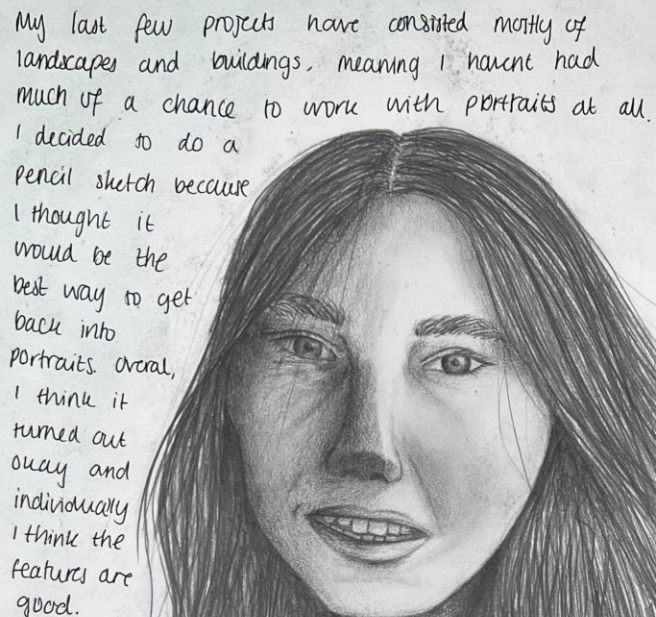 My last few projects have consisted mostly of
landscapes and buildings, meaning I havent had
much of a chance to work with portraits at all.
I decided to do a
pencil sketch because
I thought it
would be the
best way to get
back into
portraits. Overal,
I think it
turned out
okay and
individually
I think the
features are
good.